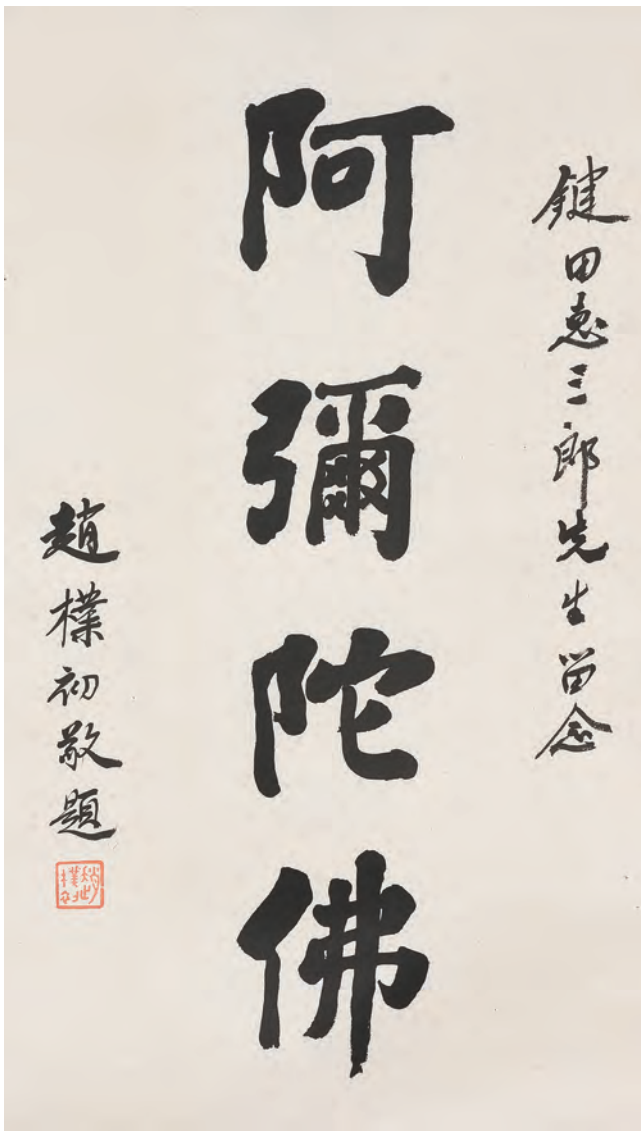 鍵田忠三郎先生留念
阿彌陀佛
趙樸初敬題
趙樸初